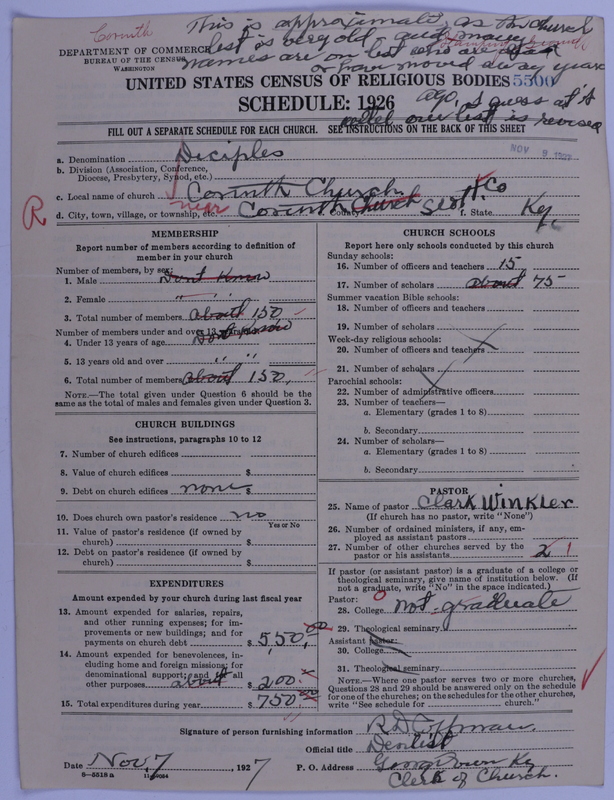 Corinth
This is approximate as the church
list is very old and many
names are on list who are
or have moved away years
ago, I guess at it
until our list is revised
DEPARTMENT OF COMMERCE
BUREAU OF THE CENSUS
WASHINGTON
UNITED STATES CENSUS OF RELIGIOUS BODIES 5500
SCHEDULE: 1926
FILL OUT A SEPARATE SCHEDULE FOR EACH CHURCH. SEE INSTRUCTIONS ON THE BACK OF THIS SHEET
NOV 9
a. Denomination Deciples
b. Division (Association, Conference,
Diocese, Presbytery, Synod, etc.)
c. Local name of church Corinth Church
R
d. City, town, village, or township, etc. near Corinth Church County Scott Co f. State Ky
MEMBERSHIP
Report number of members according to definition of
member in your church
Number of members, by sex:
1. Male Dont Know
2. Female " "
3. Total number of members about 150
Number of members under and over 13
4. Under 13 years of age Dont Know
5. 13 years old and over " "
6. Total number of members about 150
NOTE.—The total given under Question 6 should be
the same as the total of males and females given under Question 3.
CHURCH BUILDINGS
See instructions, paragraphs 10 to 12
7. Number of church edifices
8. Value of church edifices $
9. Debt on church edifices none $
10. Does church own pastor's residence no
Yes or No
11. Value of pastor's residence (if owned by
church) $
12. Debt on pastor's residence (if owned by
church) $
EXPENDITURES
Amount expended by your church during last fiscal year
13. Amount expended for salaries, repairs,
and other running expenses; for im-
provements or new buildings; and for
payments on church debt $ 550.00
14. Amount expended for benevolences, in-
cluding home and foreign missions; for
denominational support; and all
other purposes about $ 200.
15. Total expenditures during year $ 750
CHURCH SCHOOLS
Report here only schools conducted by this church
Sunday schools:
16. Number of officers and teachers 15
17. Number of scholars about 75
Summer vacation Bible schools:
18. Number of officers and teachers
19. Number of scholars
Week-day religious schools:
20. Number of officers and teachers
21. Number of scholars
Parochial schools:
22. Number of administrative officers
23. Number of teachers—
a. Elementary (grades 1 to 8)
b. Secondary
24. Number of scholars—
a. Elementary (grades 1 to 8)
b. Secondary
PASTOR
25. Name of pastor Clark Winkler
(If church has no pastor, write "None")
26. Number of ordained ministers, if any, em-
ployed as assistant pastors
27. Number of other churches served by the
pastor or his assistants 2 1
If pastor (or assistant pastor) is a graduate of a college or
theological seminary, give name of institution below. (If
not a graduate, write "No" in the space indicated.)
Pastor: 0
28. College not graduate
29. Theological seminary
Assistant pastor:
30. College
31. Theological seminary
NOTE.—Where one pastor serves two or more churches,
Questions 28 and 29 should be answered only on the schedule
for one of the churches; on the schedules for the other churches,
write "See schedule for church."
Signature of person furnishing information R D Coffman
Official title Dentist
Date Nov, 7, 1927 P. O. Address Georgetown Ky
Clerk of Church.
8—5518 a